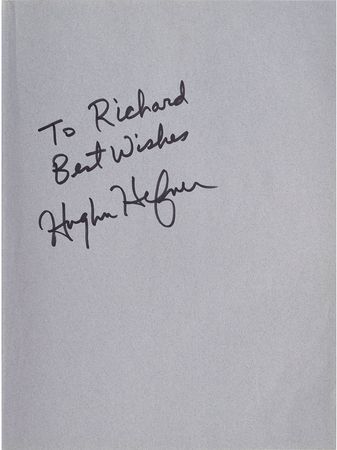 To Richard
Best Wishes
Hugh Hefner